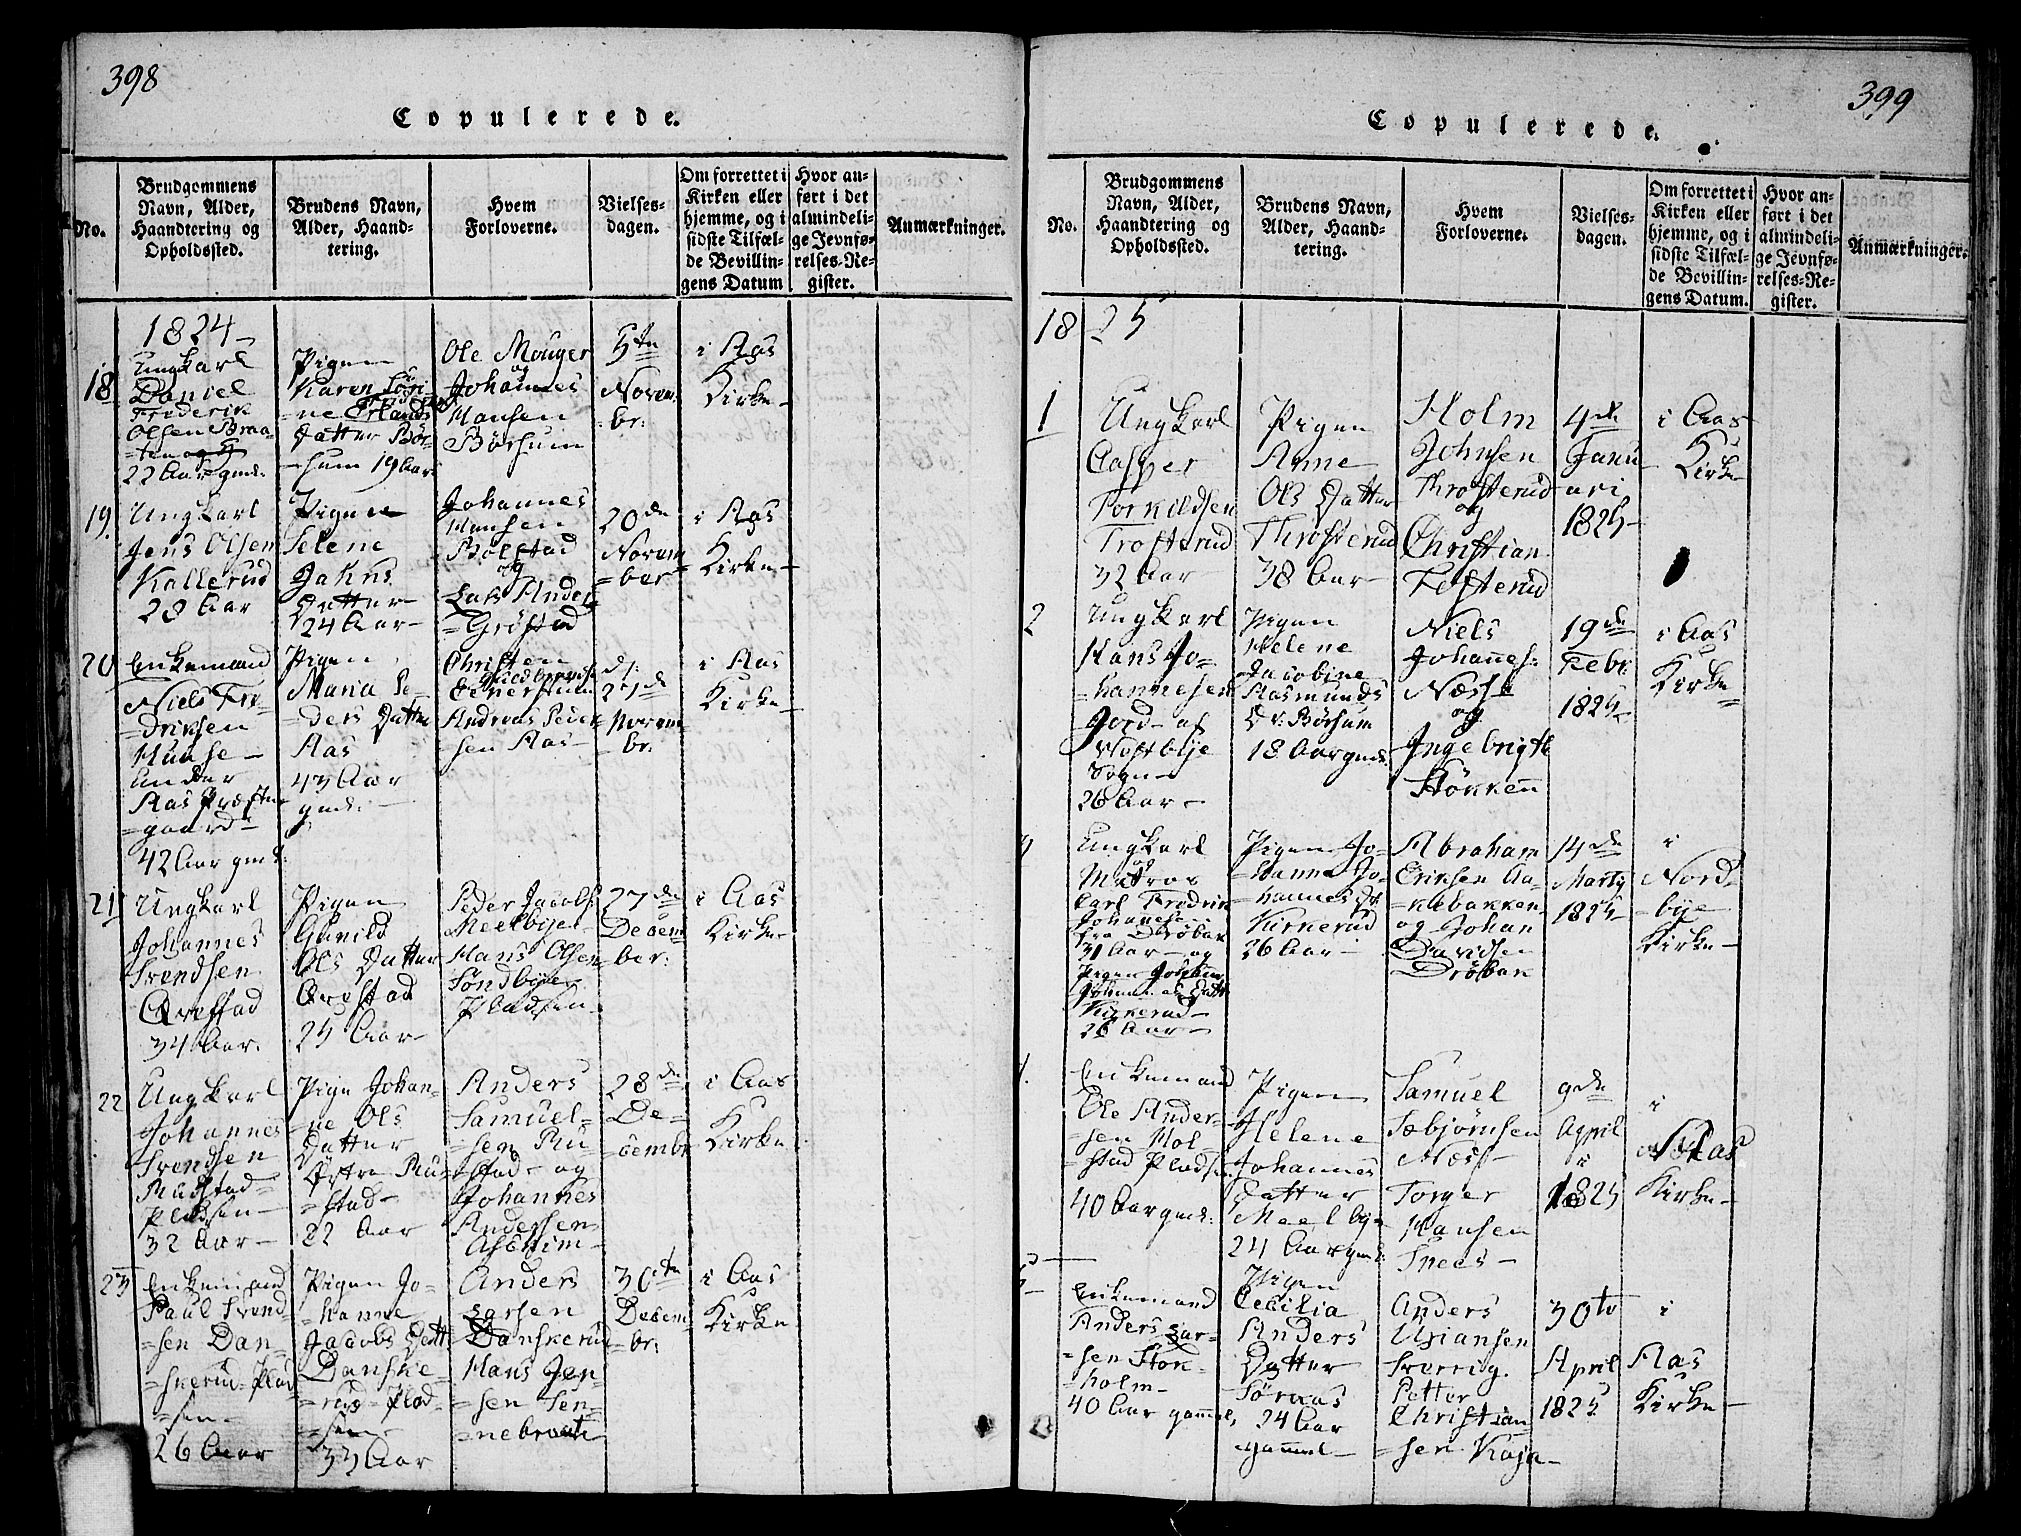 398
Copulerede.
No.
Brudgommens
Navn, Alder,
Haandtering og
Opholdssted.
Brudens Navn,
Alder, Haand-
tering.
Hvem
Forloverne.
Vielses-
dagen.
Om forrettet i
Kirken eller
hjemme, og i
sidste Tilfæl-
de Bevillin-
gens Datum
Hvor an-
ført i det
almindeli-
ge Jevnfø-
relses-Re-
gister.
Anmærkninger.
1824
18
Ungkarl
Daniel
Frederik
Olsen Braa-
22 Aar gml.
Pigen
Karen
-ne Erlands
Datter Bör-
-sum 19 Aar
Ole Mouger
og
Johannes
Hansen
Börsum
5te
Novem
br:
i Aas
Kirke
19.
Ungkarl
Jens Olsen
Kallerud
28 Aar
Pigen
Helene
Jahns
Datter
24 Aar
Johannes
Hansen
Bölstad
og
Lars Anders
=Gröstad
20de
Novem
=ber
i Aas
Kirke
20
Enkemand
Niels Fre-
=driksen
Huuse
under
Aas Præste
=gaard
42 Aar gml:
Pigen
Maria Pe-
=ders Datter
Aas
43 Aar
gml:
Christen
Andreas Peder
-sen Aas
d:
27de
Novem
br:
i Aas
Kirke
21
Ungkarl
Johannes
Svendsen
34 Aar.
Pigen
Gunild
Ols Datter
25 Aar
Peder Jacobs
Meelbye
Hans Olsen
Söndbye
Pladsen
27de
Decem
=ber:
i Aas
Kirke
22
Ungkarl
Johannes
Svendsen
Rustad
Pladsen
32 Aar
Pige Johan-
=ne Ols
Datter
Östre Ru-
=stad
22 Aar
Anders
Samuel-
=sen Ru
stad og
Johannes
Andersen
Aschim
28de
De-
=cembr
i Aas
Kirke
23
Enkemand
Paul Svend
=sen Dan-
=skerud-Plad
=sen
26 Aar
Pigen Jo-
=hanne
Jacobs Datt
Danske-
=rud-Plad-
=sen
33 Aar
Anders
Larsen
Danskerud
Hans Jen-
=sen Sen-
=nebraat
30te
Decem-
=br:
i Aas
Kirke
399
Copulerede.
No.
Brudgommens
Navn, Alder,
Haandtering og
Opholdssted.
Brudens Navn,
Alder, Haand-
tering.
Hvem
Forloverne.
Vielses-
dagen.
Om forrettet i
Kirken eller
hjemme, og i
sidste Tilfæl-
de Bevillin-
gens Datum.
Hvor an-
ført i det
almindeli-
ge Jevnfø-
relses-Re-
gister.
Anmærkninger.
18 25
1
Ungkarl
Casper
Torkildsen
Trosterud
32 Aar
Pigen
Anne
Ols Datter
Throsterud
38 Aar
Holm
Johnsen
Throsterud
og
Christian
Festerud
4de
Janu
ari
1825
i Aas
Kirke
2
Ungkarl
Hans Jo-
=hannesen
Jord af
Westbye
Sogn
26 Aar
Pigen
Helene
Jacobine
Rasmunds
Dr: Börsum
18 Aar gml:
Niels
Johanes:
Næsse
og
Ingebrigth
Stökken
19de
Febr
1825
i Aas
Kirke
3
Ungkarl
og
Matros
Carl Fredrik
Johanesen
fra Dröbak
31 Aar og
Pigen Johanne
Kirkerud
26 Aar
Pigen Jo-
=hanne Jo-
=hannes Dr
Kirkerud
26 Aar
Abraham
Eriksen Aa-
=kebakken
og Johan
Davidsen
Dröbak
14de
Marty
1825
i
Nord-
=bye
Kirke
4.
Enkemand
Ole Ander-
=sen Hol-
=stad Pladsen
40 Aar gml:
Pigen
Helene
Johannes
Datter
Meelbye
24 Aar gml:
Samuel
Tæbjörnsen
Næss
Torger
Hansen
Snees
9de
April
1825
i
Aas
Kirke
5
Enkemand
Anders Lar-
=sen Stok-
=holm
40 Aar gammel,
Pigen
Cecilia
Anders
Datter
Söraas
24 Aar
gammel
Anders
Christiansen
Sverrig.
Petter
Christian
=sen Kaja
30te
April
1825
i
Aas
Kirke